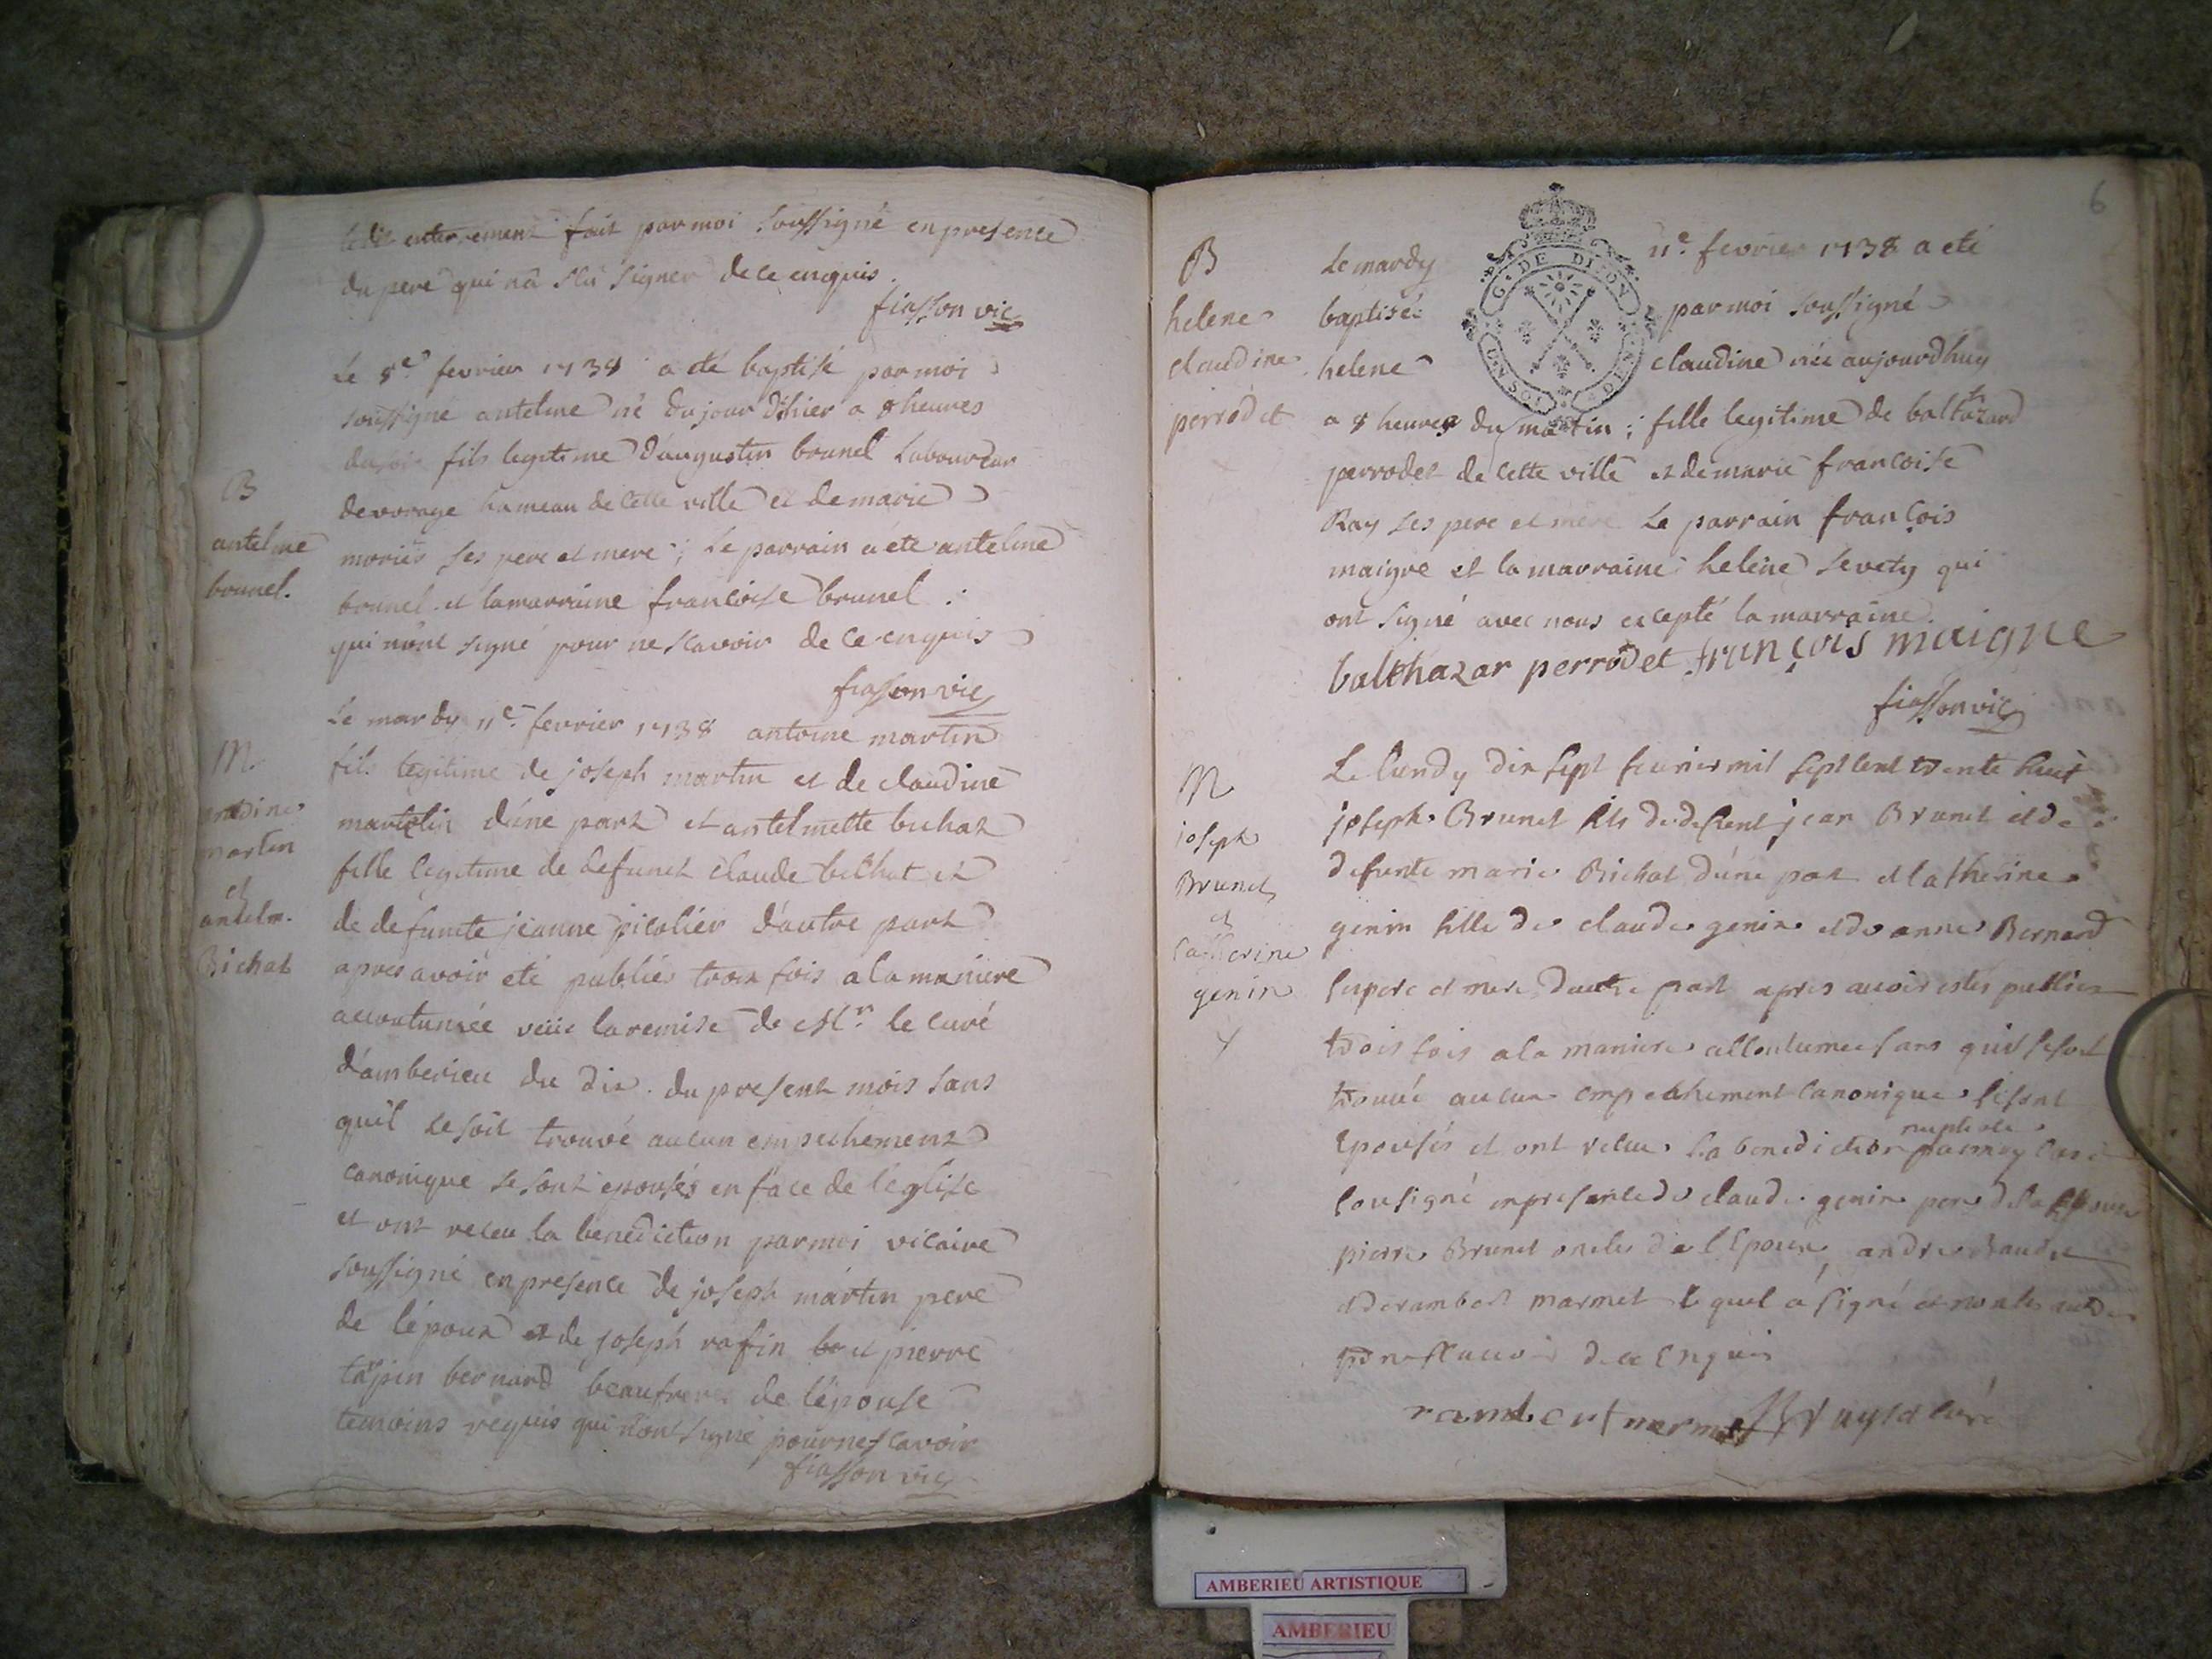 ledit enterrement fait par moi soussigné en presence
du pere qui nâ sçû signer de ce enquis.
fiasson vic
Le 8e fevrier 1738 a été baptisé par moi
soussigné antelme né du jour d'hier a 8 heures
du soir fils legitime d'augustin brunel Laboureur
de vorage hameau de cette ville et de marie
B
antelme
brunel.
ses pere et mere; Le parrain a été antelme
brunel et la marraine francoise brunel
qui n'ont signé pour ne scavoir de ce enquis
fiasson vic
Le mardy 11e fevrier 1738 antoine martin
fils legitime de joseph martin et de claudine
martelin d'une part et antelmette bichat
fille legitime de defunct claude bichat et
de defuncte jeanne picolier d'autre part
apres avoir été publiés trois fois a la maniere
accoutumée veüe la remise de Mr. le curé
d'amberieu du dix du present mois sans
qu'il se soit trouvé aucun empechement
canonique se sont epousés en face de l'eglise
et ont receu la benediction par moi vicaire
soussigné en presence de joseph martin pere
de l'epoux et de joseph rafin et pierre
tapin bernard beaufreres de l'épouse
temoins requis qui n'ont signé pour ne scavoir
fiasson vic
M.
martin
et
antelm.
Bichat
6
B
helene
claudine
perrodet
Le mardy 11e. fevrier 1738 a eté
baptisée par moi soussigné
helene claudine née aujourdhuy
a 8 heures du matin; fille legitime de baltazard
perrodet de cette ville et de marie francoise
Ray ses pere et mere Le parrain françois
maigre et la marraine helene sevety qui
ont signé avec nous excepté la marraine.
balthazar perrodet françois maigre
fiasson vic
G. DE DIJON
M
joseph
Brunet
et
Catherine
genin
Le lundy dix sept fevrier mil sept cent trente huit
joseph Brunet fils de defunt jean Brunet et de
defunte marie Bichat d'une part et Catherine
genin fille de claude genin et de anne Bernard
ses pere et mere d'autre part apres avoir estés publiez
trois fois a la maniere accoutumee sans quil se soit
trouvé aucun empechement canonique se sont
Epousés et ont receu la benediction nuptiale par moy Curé
sousigné en presence de claude genin pere de la Epouse
pierre Brunet oncle de l'Epoux, andre
et de rambert marmet lequel a signé et non les autres
pour ne scavoir de ce Enquis
rambert marmet curé
AMBERIEU ARTISTIQUE
AMBERIEU